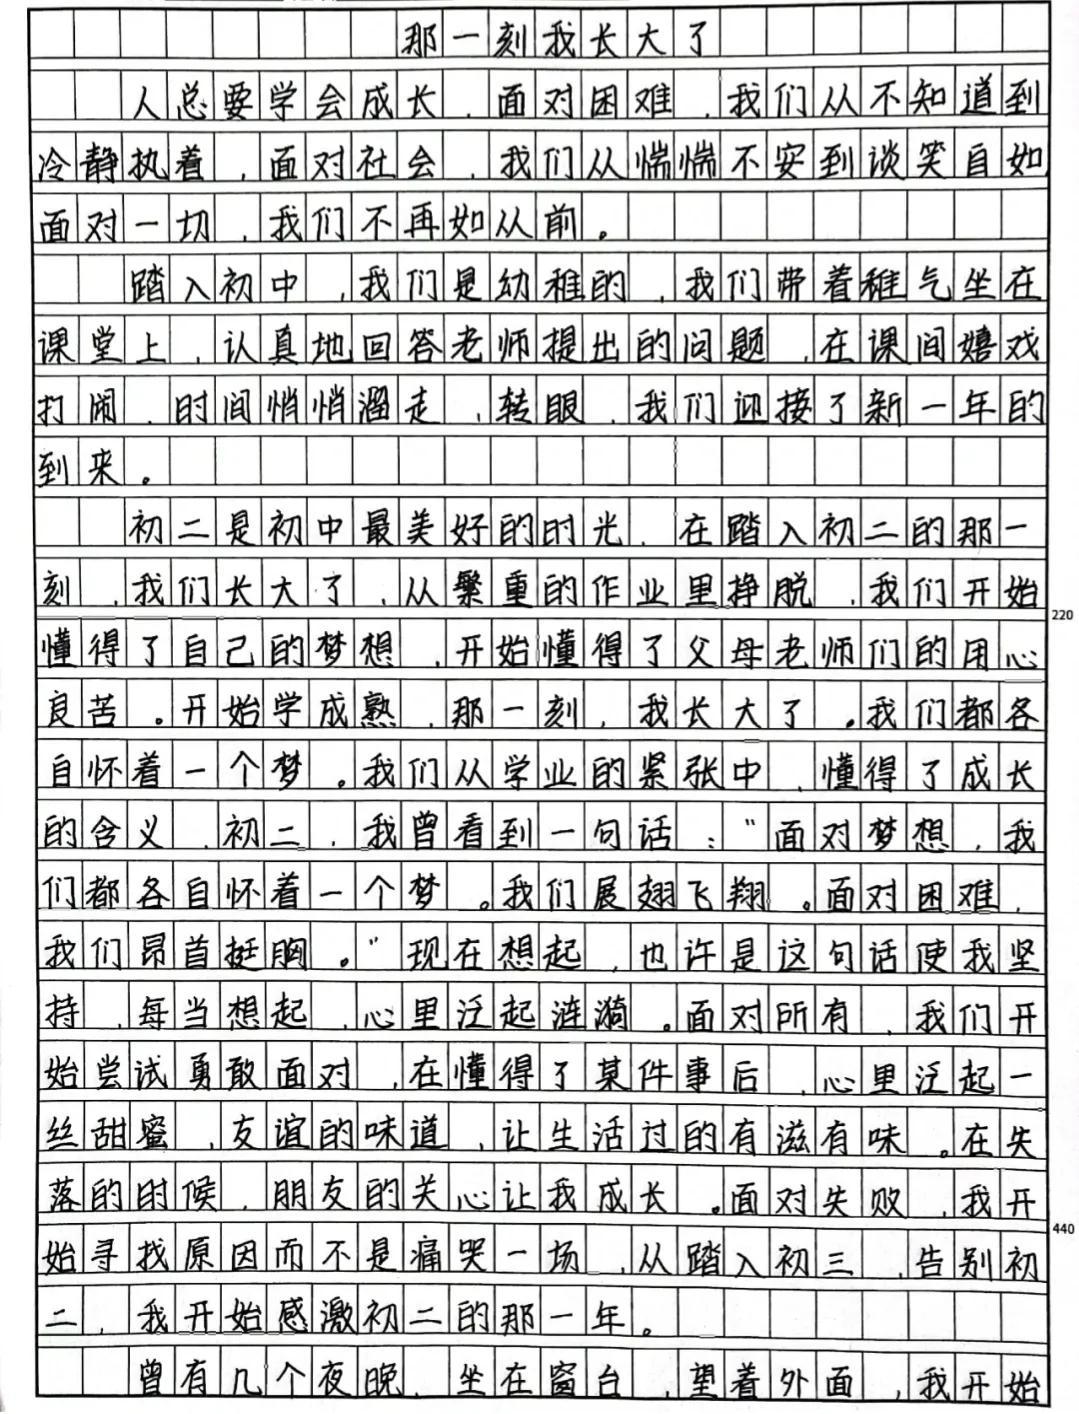 那一刻我长大了
人总要学会成长,面对困难,我们从不知道到
冷静执着,面对社会,我们从惴惴不安到谈笑自如
面对一切,我们不再如从前。
踏入初中,我们是幼稚的,我们带着稚气坐在
课堂上,认真地回答老师提出的问题,在课间嬉戏
打闹,时间悄悄溜走,转眼,我们迎接了新一年的
到来。
初二是初中最美好的时光,在踏入初二的那一
刻,我们长大了,从繁重的作业里挣脱,我们开始
懂得了自己的梦想,开始懂得了父母老师们的用心
良苦。开始学成熟,那一刻,我长大了。我们都各
自怀着一个梦。我们从学业的紧张中,懂得了成长
的含义,初二,我曾看到一句话:"面对梦想,我
们都各自怀着一个梦。我们展翅飞翔。面对困难,
我们昂首挺胸。"现在想起,也许是这句话使我坚
持,每当想起,心里泛起涟漪。面对所有,我们开
始尝试勇敢面对,在懂得了某件事后,心里泛起一
丝甜蜜,友谊的味道,让生活过的有滋有味。在失
落的时候,朋友的关心让我成长。面对失败,我开
始寻找原因而不是痛哭一场,从踏入初三,告别初
二,我开始感激初二的那一年。
曾有几个夜晚,坐在窗台,望着外面,我开始
220
440